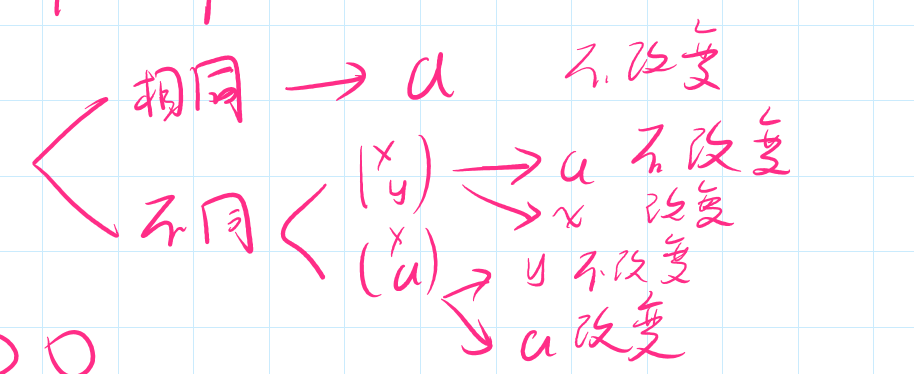 相同 → a 不改变
不同 (x y) → a 不改变
→ x 改变
(x a) → y 不改变
→ a 改变